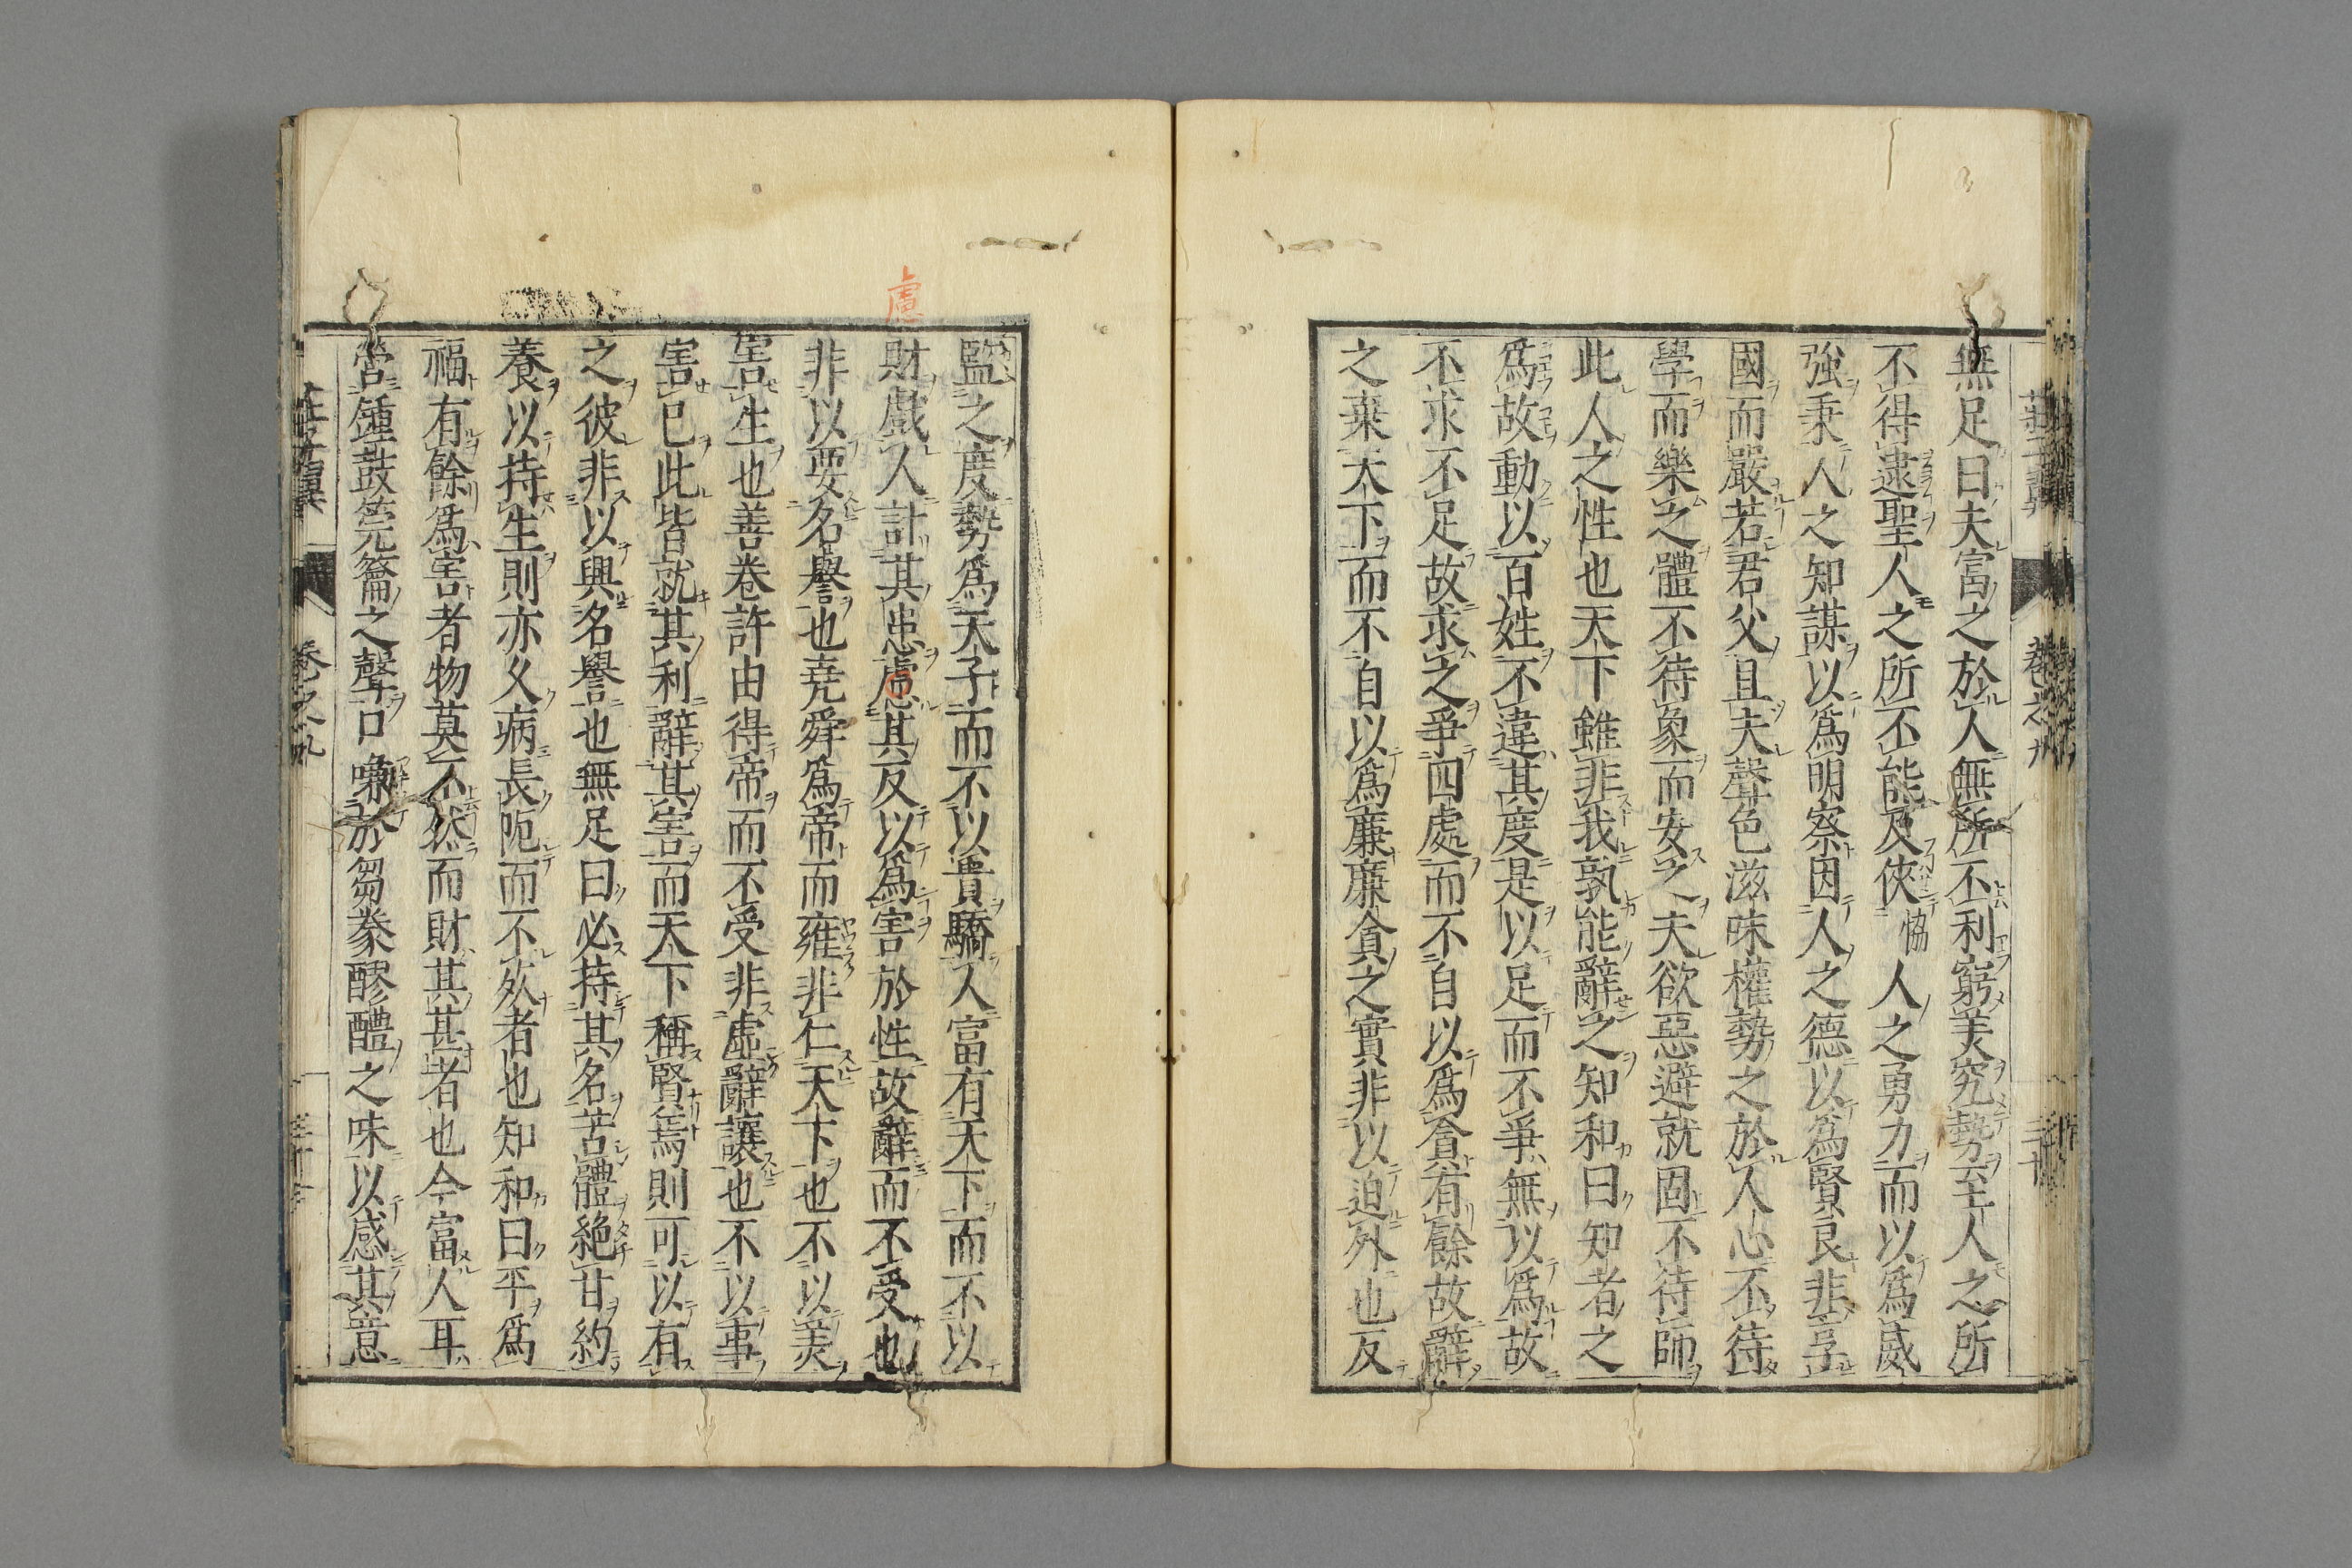 無足曰夫富之於人無所不利窮美究勢至人之所
不得逮聖人之所不能及俠恊人之勇力而以爲威
強秉人之知謀以爲明察因人之德以爲賢良非享
國而嚴若君父且夫聲色滋味權勢之於人心不待
學而樂之體不待象而安之夫欲惡避就固不待師
此人之性也天下雖非我孰能辭之知和曰知者之
爲故動以百姓不違其度是以足而不爭無以爲故
不求不足故求之爭四處而不自以爲貪有餘故辭
之棄天下而不自以爲廉廉貪之實非以迫外也反
監之度勢爲天子而不以貴驕人富有天下而不以
財戲人計其患慮其反以爲害於性故辭而不受也
非以要名譽也堯舜爲帝而雍非仁天下也不以美
害生也善卷許由得帝而不受非虛辭讓也不以事
害己此皆就其利辭其害而天下稱賢焉則可以有
之彼非以興名譽也無足曰必持其名苦體絕甘約
養以持生則亦久病長阨而不死者也知和曰平爲
福有餘爲害者物莫不然而財其甚者也今富人耳
營鍾鼓筦籥之聲口嗛於芻豢醪醴之味以感其意
慮
莊子翼
卷之九